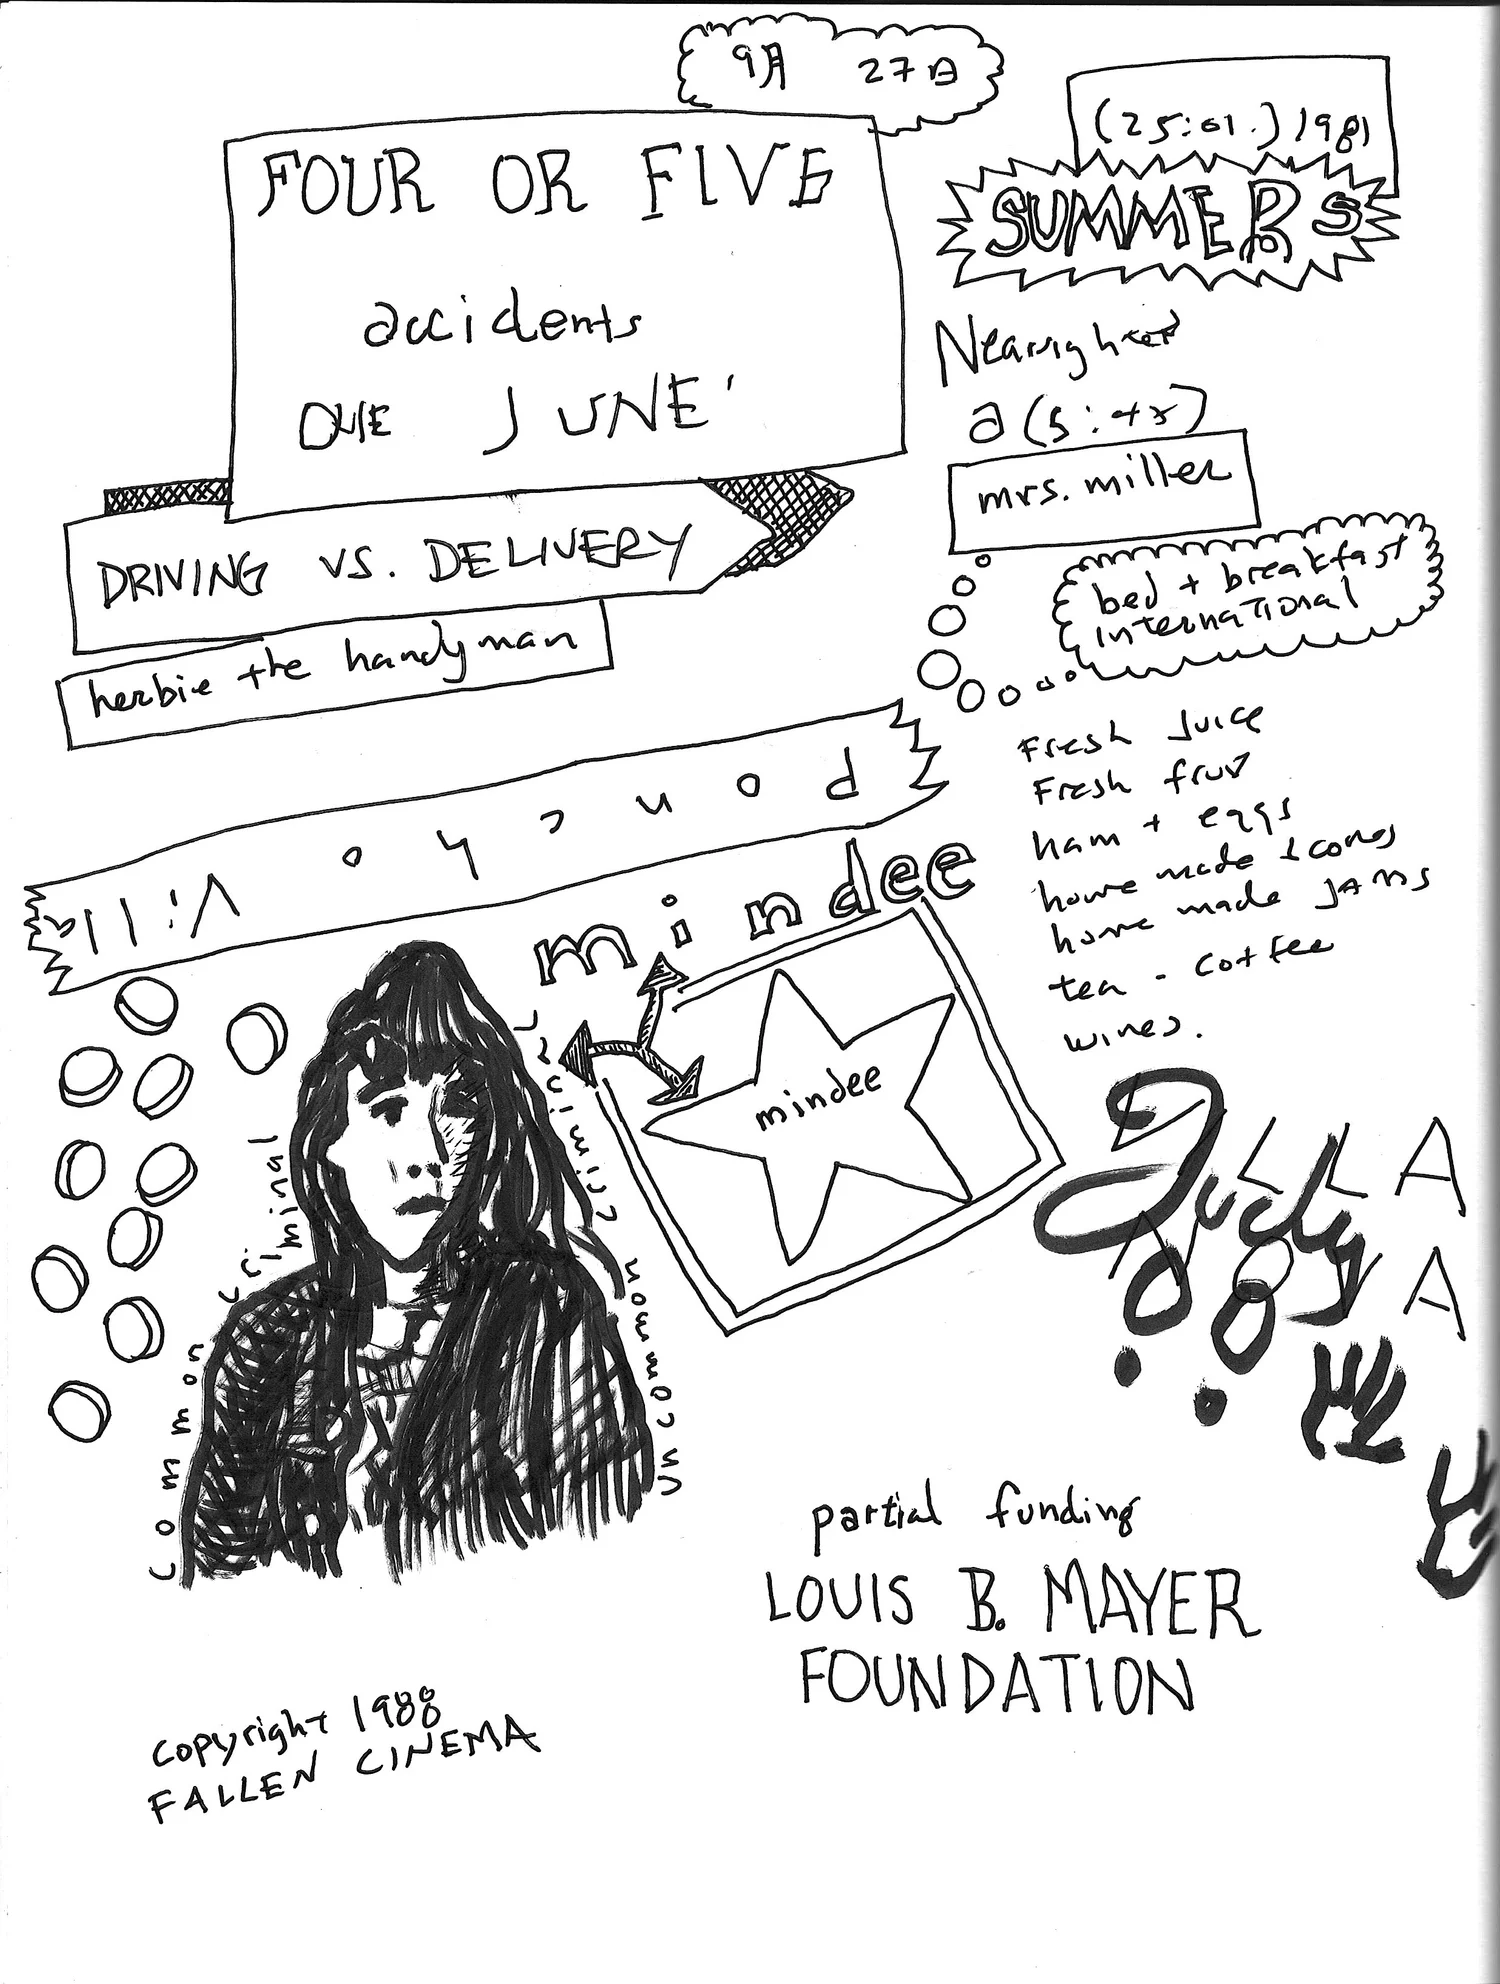 9月 27日
FOUR OR FIVE
accidents
ONE JUNE'
(25:01.) 1981
SUMMERS
Nearsighted
mrs. miller
DRIVING VS. DELIVERY
herbie the handyman
bed + breakfast
international
Fresh Juice
Fresh fruit
ham + eggs
home made scones
home made jams
tea - coffee
wines.
poncho
mindee
mindee
common criminal
uncommon criminal
Judy
partial funding
LOUIS B. MAYER
FOUNDATION
copyright 1988
FALLEN CINEMA